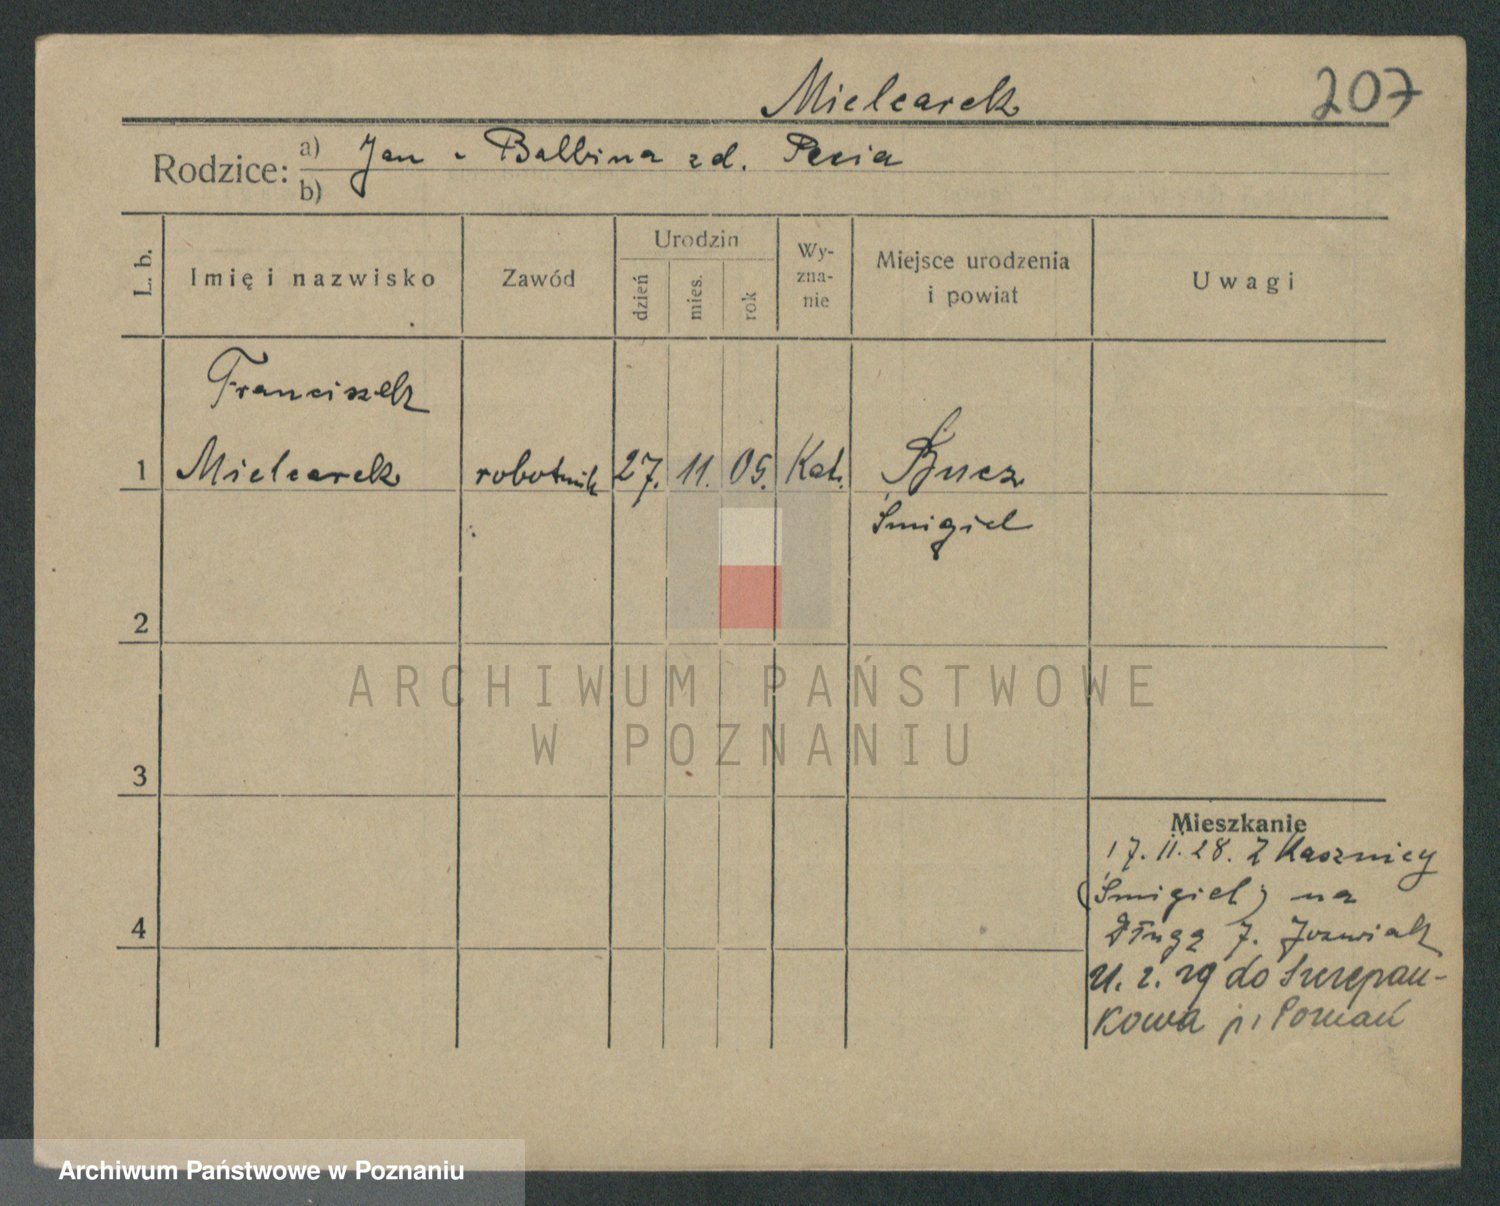 Mielcarek
207
Rodzice: a) Jan - Balbina zd. Pecia
b)
L. b.
Imię i nazwisko
Zawód
Urodzin
dzień
mies.
rok
Wy-
zna-
nie
Miejsce urodzenia
i powiat
Uwagi
Franciszek
1 Mielcarek robotnik 27. 11. 05. Kat. Bucz
Śmigiel
2
3
4
Mieszkanie
17.11.28. Z
(Śmigiel) na
Długą 7. Jozwiak
do Szczepan-
kowa p. Poznań
ARCHIWUM PAŃSTWOWE
W POZNANIU
Archiwum Państwowe w Poznaniu